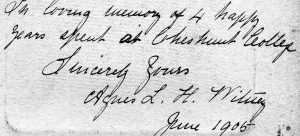 In loving memory of 4 happy
years spent at Cheshunt College
Sincerely Yours
Agnes L. H. Witney
June 1905